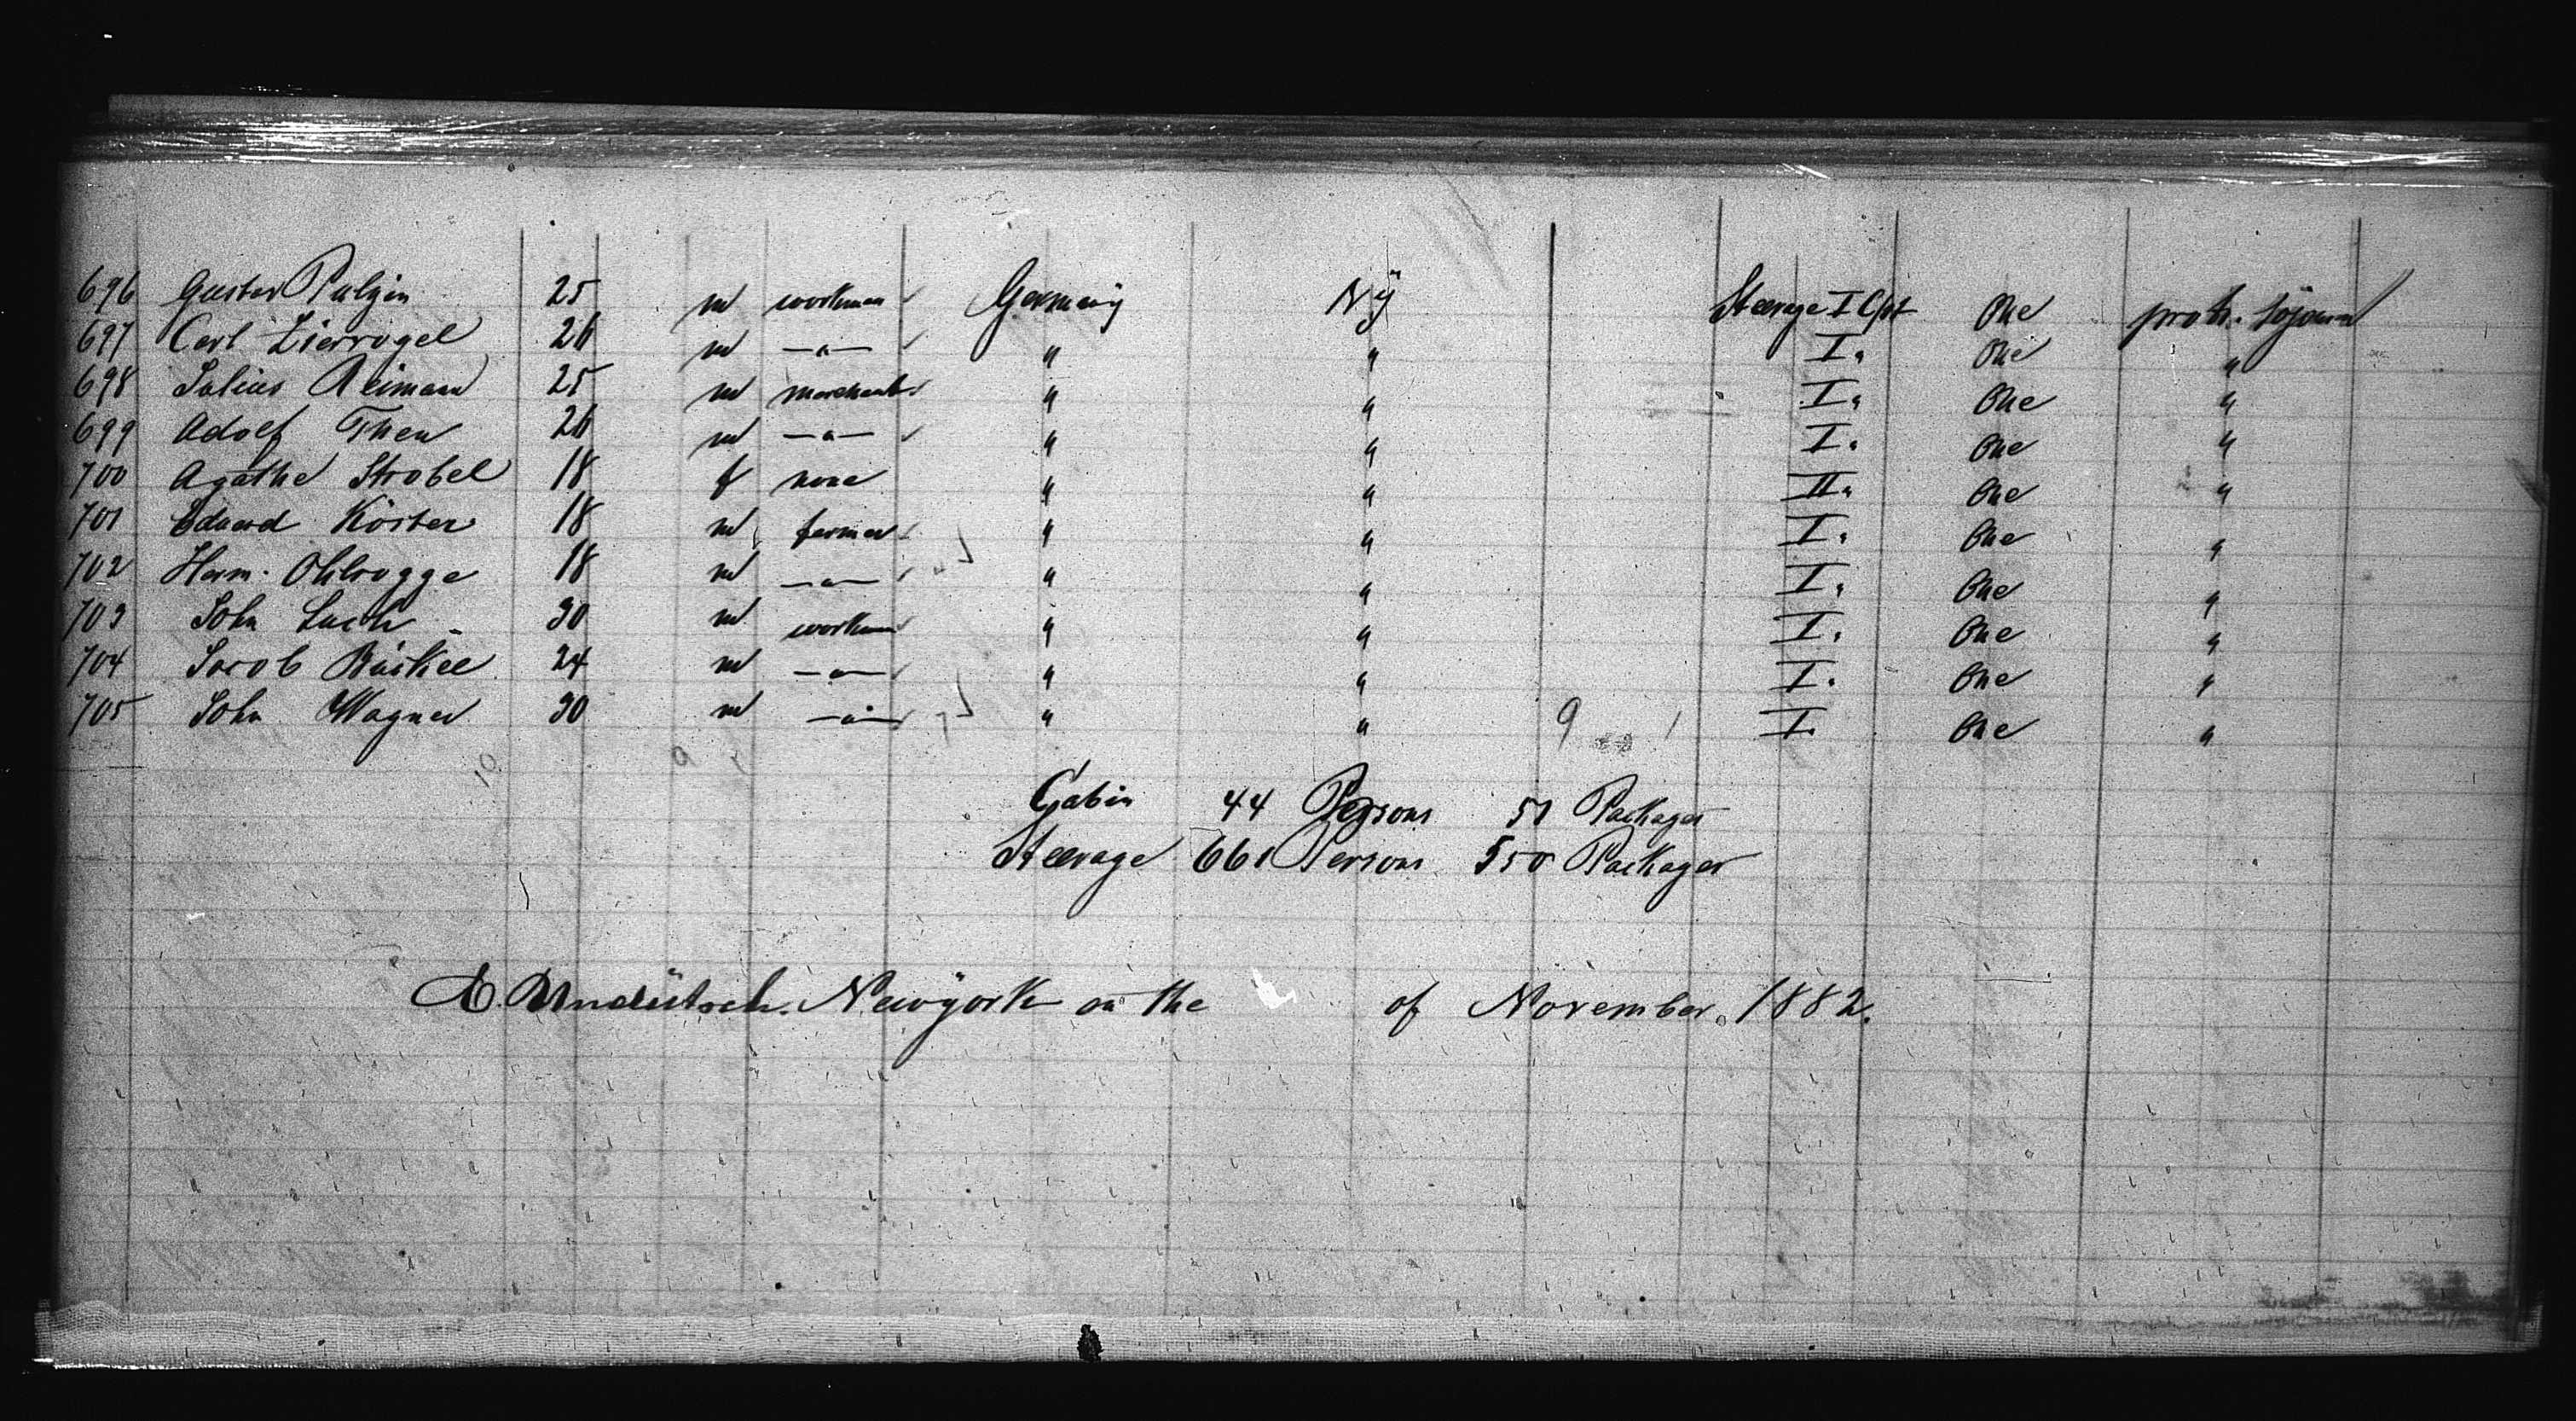 696 Gustav Pulgin 25 m workman Germany Ny Steerage I Cpt One prot. sojourn
697 Carl Ziervogel 26 m —"— " " I " One "
698 Julius Reimann 25 m merchant " " I " One "
699 Adolf Then 26 m —"— " " I " One "
700 Agathe Strobel 18 f none " " II " One "
701 Eduard Köster 18 m farmer " " I " One "
702 Herm. Ohlrogge 18 m —"— " " I " One "
703 John 30 m workman " " I " One "
704 Jacob 24 m —"— " " I " One "
705 John Wagner 30 m —"— " " 9 I " One "
10
Cabin 44 Persons 51 Packages
Steerage 661 Persons 550 Packages
Undeütsch. Newÿork on the of November. 1882.